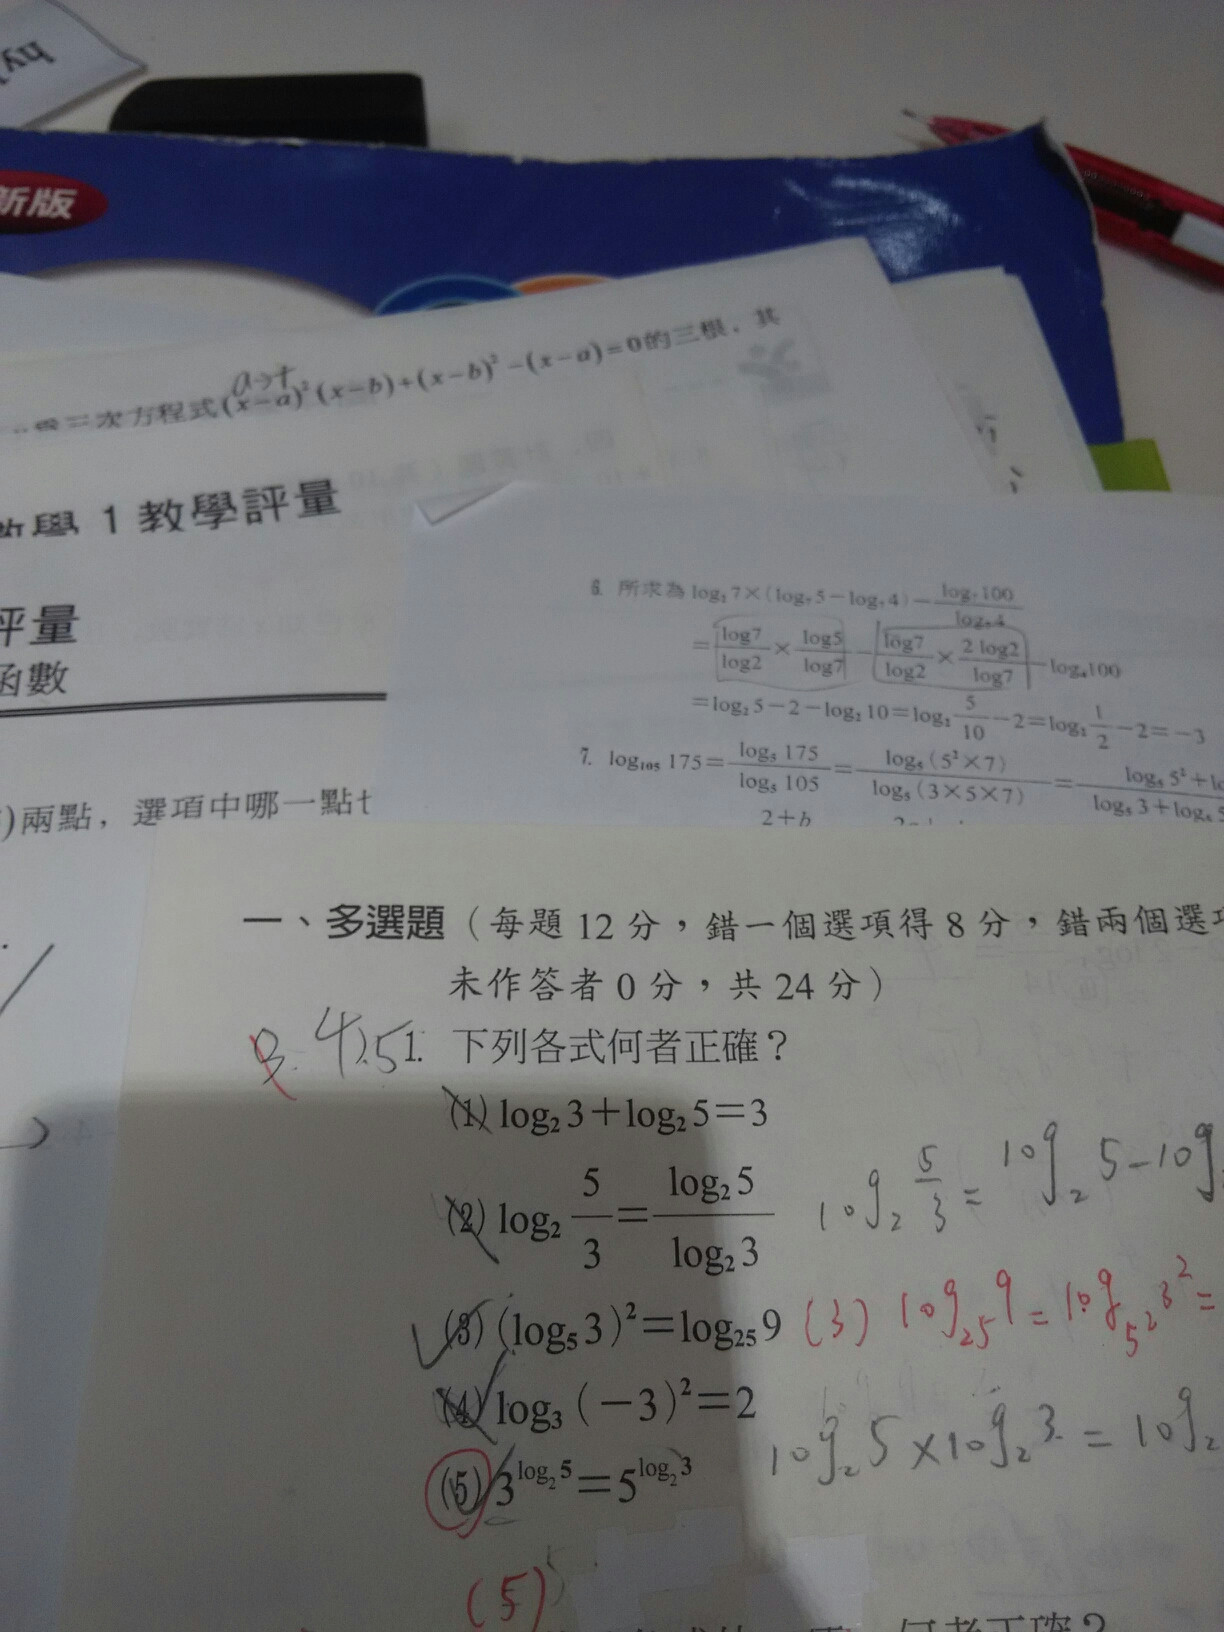 新版
a→t
三次方程式(x-a)²(x-b)+(x-b)²-(x-a)=0的三根,其
數學 1 教學評量
評量
函數
6. 所求為 log₂7×(log₇5-log₇4)-log₇100/log₇4
=log7/log2 × log5/log7 - log7/log2 × 2 log2/log7 -log₄100
=log₂5-2-log₂10=log₂ 5/10 -2=log₂ 1/2 -2=-3
7. log₁₀₅ 175= log₅ 175/log₅ 105 = log₅ (5²×7)/log₅ (3×5×7) = log₅ 5²+/log₅ 3+log₅ 5
2+b
)兩點,選項中哪一點
一、多選題(每題 12 分,錯一個選項得 8 分,錯兩個選項
未作答者 0 分,共 24 分)
4.5 1. 下列各式何者正確?
(1) log₂3+log₂5=3
(2) log₂ 5/3 = log₂5/log₂3 log₂ 5/3 = log₂ 5-log
(3) (log₅3)²=log₂₅9 (3) log₂₅9=log₅²3²=
(4) log₃(-3)²=2
(5) 3^log₂5=5^log₂3 log₂5×log₂3=log₂
(5)
何者正確?